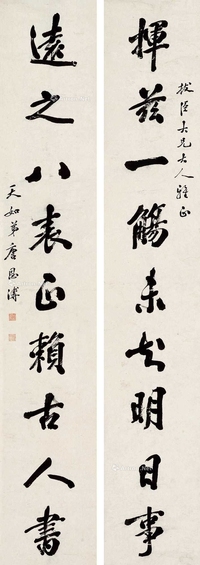 臣大兄大人雅正
揮茲一觴未知明日事
遠之八表正賴古人書
天如弟唐恩溥